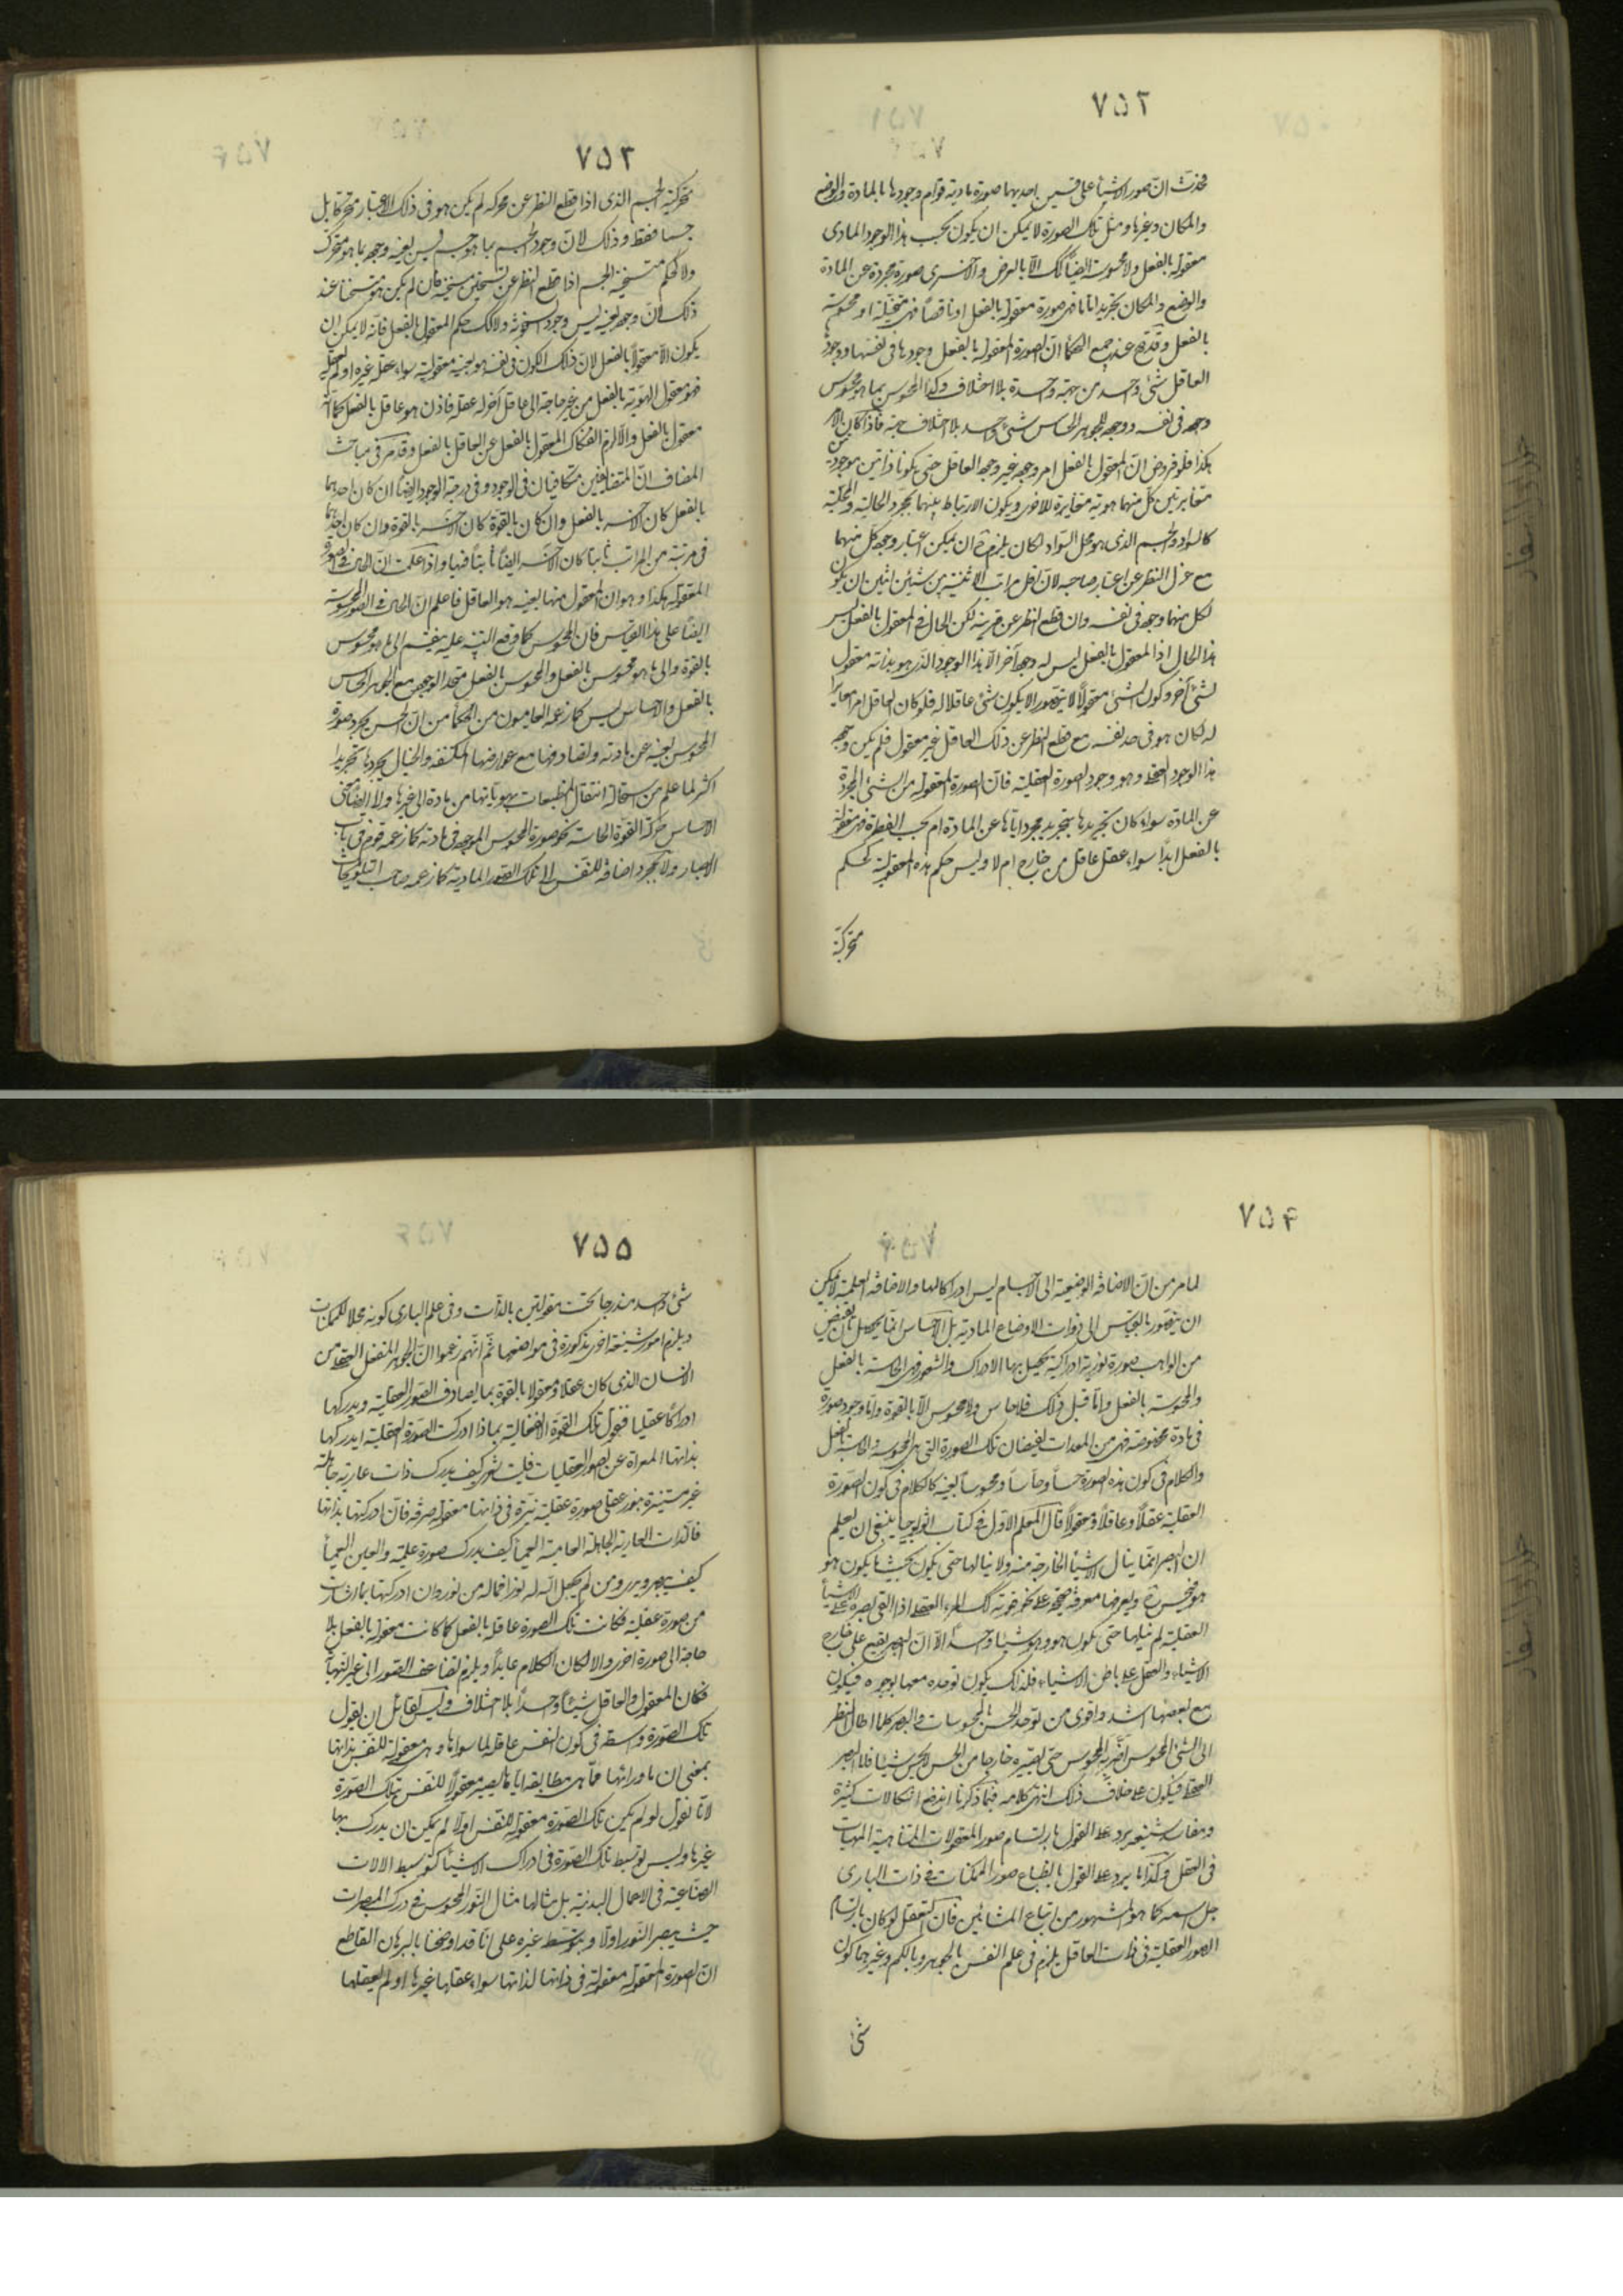 ٧٥٢
فخذت انّ صور الاشياء على قسمين احديهما صورة مادية قوام وجودها بالمادة والوضع
والمكان وغيرها ومثل تلك الصورة لا يمكن ان يكون بحسب هذا الوجود المادى
معقولة بالفعل ولا محسوسة ايضاً كك الّا بالعرض والاخرى صورة مجردة عن المادة
والوضع والمكان تجريدا تاما فهى صورة معقولة بالفعل او ناقصاً فهى متخيّلة او محسوسة
بالفعل وقد صح عند جميع الحكماء ان الصورة المعقولة بالفعل وجودها فى نفسها ووجودها
العاقل شئ واحد من جهة واحدة بلا اختلاف وكذا المحسوس بما هو محسوس
وجوده فى نفسه ووجوده للجوهر الحاس شئ واحد بلا اختلاف جهة فاذا كان الامر
هكذا فلو فرض انّ المعقول بالفعل امر وجوده غير وجود العاقل حتى يكونا ذاتين موجودتين
متغايرتين لكل منهما هوية مغايرة للاخرى ويكون الارتباط بينهما بمجرد الحالية والمحلية
كالسواد والجسم الذى هو محل السّواد لكان يلزم ح ان يمكن اعتبار وجود كل منهما
مع عزل النظر عن اعتبار صاحبه لانّ اقل مراتب الاثنينية بين شيئين اثنين ان يكون
لكل منهما وجود فى نفسه وان قطع النظر عن قرينه لكن الحال فى المعقول بالفعل ليس
هذا الحال اذ المعقول بالفعل ليس له وجود آخر الّا هذا الوجود الذى هو بذاته معقول
لشئ آخر وكون الشئ معقولاً لا يتصور الا بكون شئ عاقلا له فلو كان العاقل امرا مغايرا
له لكان هو فى حد نفسه مع قطع النظر عن ذلك العاقل غير معقول فلم يكن وجوده
هذا الوجود العقلى وهو وجود الصورة العقلية فانّ الصورة المعقولة من الشئ المجردة
عن المادة سواء كان تجريدها بتجريد مجرد اياها عن المادة ام بحسب الفطرة فهى معقولة
بالفعل ابداً سواء عقل عاقل من خارج ام لا وليس حكم هذه المعقولية كحكم
متحركية
٧٥٣
متحركية الجسم الذى اذا قطع النظر عن محركه لم يكن هو فى ذلك الاعتبار متحركا بل
جسما فقط وذلك لانّ وجود الجسم بما هو جسم ليس بعينه وجوده بما هو متحرك
ولا كحكم متسخنية الجسم اذا قطع النظر عن تسخين مسخنه فانه لم يكن هو متسخنا عند
ذلك لانّ وجوده بعينه ليس وجود السخونة ولا كك حكم المعقول بالفعل فانّه لا يمكن ان
يكون الّا معقولاً بالفعل لانّ ذلك الكون فى نفسه هو بعينه معقوليته سواء عقله غيره او لم يعقله
فهو معقول الهويّة بالفعل من غير حاجة الى عاقل آخر له عقله فاذن هو عاقل بالفعل كما انّه
معقول بالفعل والّا لزم انفكاك المعقول بالفعل عن العاقل بالفعل وقد مر فى مباحث
المضاف انّ المتضايفين متكافيان فى الوجود وفى درجة الوجود ايضاً ان كان احدهما
بالفعل كان الآخر بالفعل وان كان بالقوة كان الآخر بالقوة وان كان احدهما
فى مرتبة من المراتب ثابتا كان الآخر ايضاً ثابتاً فيها واذا علمت انّ الحال فى الصورة
المعقولة هكذا وهو ان المعقول منها بعينه هو العاقل فاعلم ان الحال فى الصورة المحسوسة
ايضاً على هذا القياس فان المحسوس كما وقع التنبيه عليه ينقسم الى ما هو محسوس
بالقوة والى ما هو محسوس بالفعل والمحسوس بالفعل متحد الوجود مع الجوهر الحاس
بالفعل والاحساس ليس كما زعمه العاميون من الحكماء من انّ الحس يجرد صورة
المحسوس بعينه عن مادته ويصادفها مع عوارضها المكتنفة والخيال يجردها تجريدا
اكثر لما علم من استحالة انتقال المنطبعات بهوياتها من مادة الى غيرها ولا ايضا معنى
الاحساس حركة القوّة الحاسة نحو صورة المحسوس الموجودة فى مادته كما زعمه قوم فى باب
الابصار ولا بمجرد اضافة للنفس الى تلك الصور المادية كما زعمه صاحب التلويحات
٧٥۴
لما مر من انّ الاضافة الوضعية الى الاجسام ليس ادراكا لها والاضافة العلمية لا يمكن
ان يتصور بالقياس الى ذوات الاوضاع المادية بل الاحساس انّما يحصل بان يفيض
من الواهب صورة نورية ادراكية يحصل بها الادراك والشعور فهى الحاسة بالفعل
والمحسوسة بالفعل وامّا قبل ذلك فلا حاس ولا محسوس الّا بالقوة وامّا وجود صورة
فى مادة مخصوصة فهى من المعدات لفيضان تلك الصورة التى هى المحسوسة والحاسة بالفعل
والكلام فى كون هذه الصورة حساً وحاساً ومحسوساً بعينه كالكلام فى كون الصّورة
العقلية عقلاً وعاقلاً ومعقولاً قال المعلم الاوّل فى كتاب اثولوجيا ينبغى ان يعلم
ان البصر انّما ينال الاشياء الخارجة منه ولا ينالها حتى يكون بحيث ما يكون هو
هو فيحس ح ويعرفها معرفة صحيحة على نحو قوته كك المرء العقلى اذا القى بصره على الاشياء
العقلية لم ينلها حتى يكون هو وهى شيئا واحداً الّا انّ البصر يقع على خارج
الاشياء والعقل على باطن الاشياء فلذلك يكون توحده معها بوجوه فيكون
مع بعضها اشد واقوى من توحد الحس بالمحسوسات والبصر كلما اطال النظر
الى الشئ المحسوس اضرّ به المحسوس حتى يصيّره خارجا من الحس لا يحس شيئا فاما البصر
العقلى فيكون على خلاف ذلك انتهى كلامه فبما ذكرنا اندفع اشكالات كثيرة
ومفاسد شنيعة يرد على القول بارتسام صور المعقولات المتباينة المهيات
فى العقل وكذا ما يرد على القول بانطباع صور الممكنات فى ذات البارى
جل اسمه كما هو المشهور من اتباع المشائين فان التعقل لو كان بارتسام
الصور العقلية فى ذات العاقل يلزم فى علم النفس بالجوهر وبالكم وغيرهما كون
شئ
٧٥٥
شئ واحد مندرجا تحت مقولتين بالذات وفى علم البارى كونه محلا للممكنات
ويلزم امور شنيعة اخرى مذكورة فى مواضعها ثم انّهم زعموا انّ الجوهر المنفعل العقلى من
الانسان الذى كان عقلا ومعقولا بالقوة بما يصادف الصّور العقلية ويدركها
ادراكاً عقليا فنقول تلك القوّة الانفعالية بماذا ادركت الصّورة العقلية ايدركها
بذاتها المعراة عن الصور العقليات فليت شعرى كيف يدرك ذات عارية جاهلة
غير مستنيرة بنور عقلى صورة عقلية نيّرة فى ذاتها معقولة صرفة فان ادركتها بذاتها
فالذات العارية الجاهلة العامية العمياء كيف يدرك صورة علمية والعين العمياء
كيف يبصر ويرى ومن لم يجعل الله له نورا فما له من نور وان ادركتها بما استنارت
من صورة عقلية فكانت تلك الصورة عاقلة بالفعل كما كانت معقولة بالفعل بلا
حاجة الى صورة اخرى والا لكان الكلام عايداً ويلزم تضاعف الصّور الى غير النّهاية
فكان المعقول والعاقل شيئاً واحداً بلا اختلاف وليس لقائل ان يقول
تلك الصّورة واسطة فى كون النفس عاقلة لما سواها وهى معقولة للنفس بذاتها
بمعنى ان ما ورائها مما هى مطابقة اياها يصير معقولاً للنفس بتلك الصّورة
لانّا نقول لو لم يكن تلك الصّورة معقولة للنفس اولا لم يمكن ان يدرك بها
غيرها وليس توسيط تلك الصّورة فى ادراك الاشياء كتوسيط الالات
الصّناعية فى الاعمال البدنية بل مثالها مثال النّور المحسوس فى درك المبصرات
حيث يبصر النّور اولا وبتوسّطه غيره على انّا قد اوضحنا بالبرهان القاطع
انّ الصورة المعقولة معقولة فى ذاتها لذاتها سواء عقلها غيرها او لم يعقلها